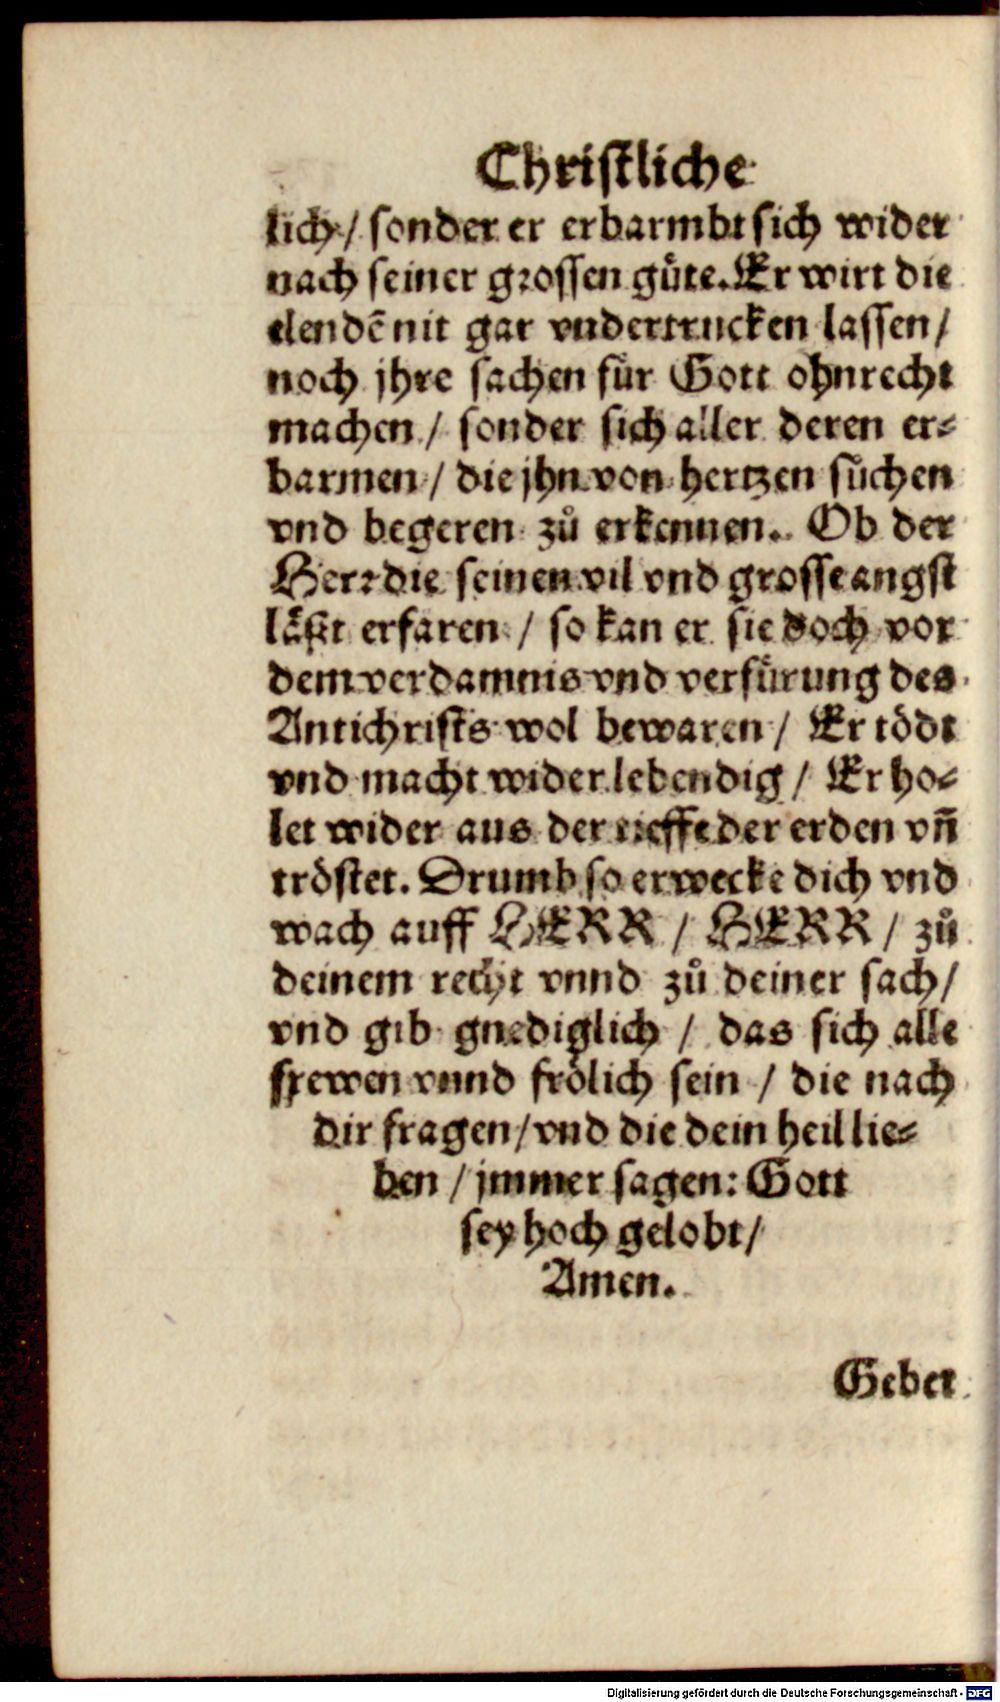 Christliche
lich / sonder er erbarmbt sich wider
nach seiner grossen guͤte. Er wirt die
elendē nit gar vndertrucken lassen /
noch jhre sachen fuͤr Gott ohnrecht
machen / sonder sich aller deren er⸗
barmen / die jhn von hertzen suͦchen
vnd begeren zuͦ erkennen. Ob der
Herr die seinen vil vnd grosse angst
laͤßt erfaren / so kan er sie doch vor
dem verdamnis vnd verfuͤrung des
Antichrists wol bewaren / Er toͤdt
vnd macht wider lebendig / Er ho⸗
let wider aus der tieffe der erden vn̄
troͤstet. Drumb so erwecke dich vnd
wach auff HERR / HERR / zuͦ
deinem recht vnnd zuͦ deiner sach /
vnd gib gnediglich / das sich alle
frewen vnnd froͤlich sein / die nach
dir fragen / vnd die dein heil lie⸗
ben / jmmer sagen: Gott
sey hoch gelobt /
Amen.
Gebet
Digitalisierung gefördert durch die Deutsche Forschungsgemeinschaft - DFG